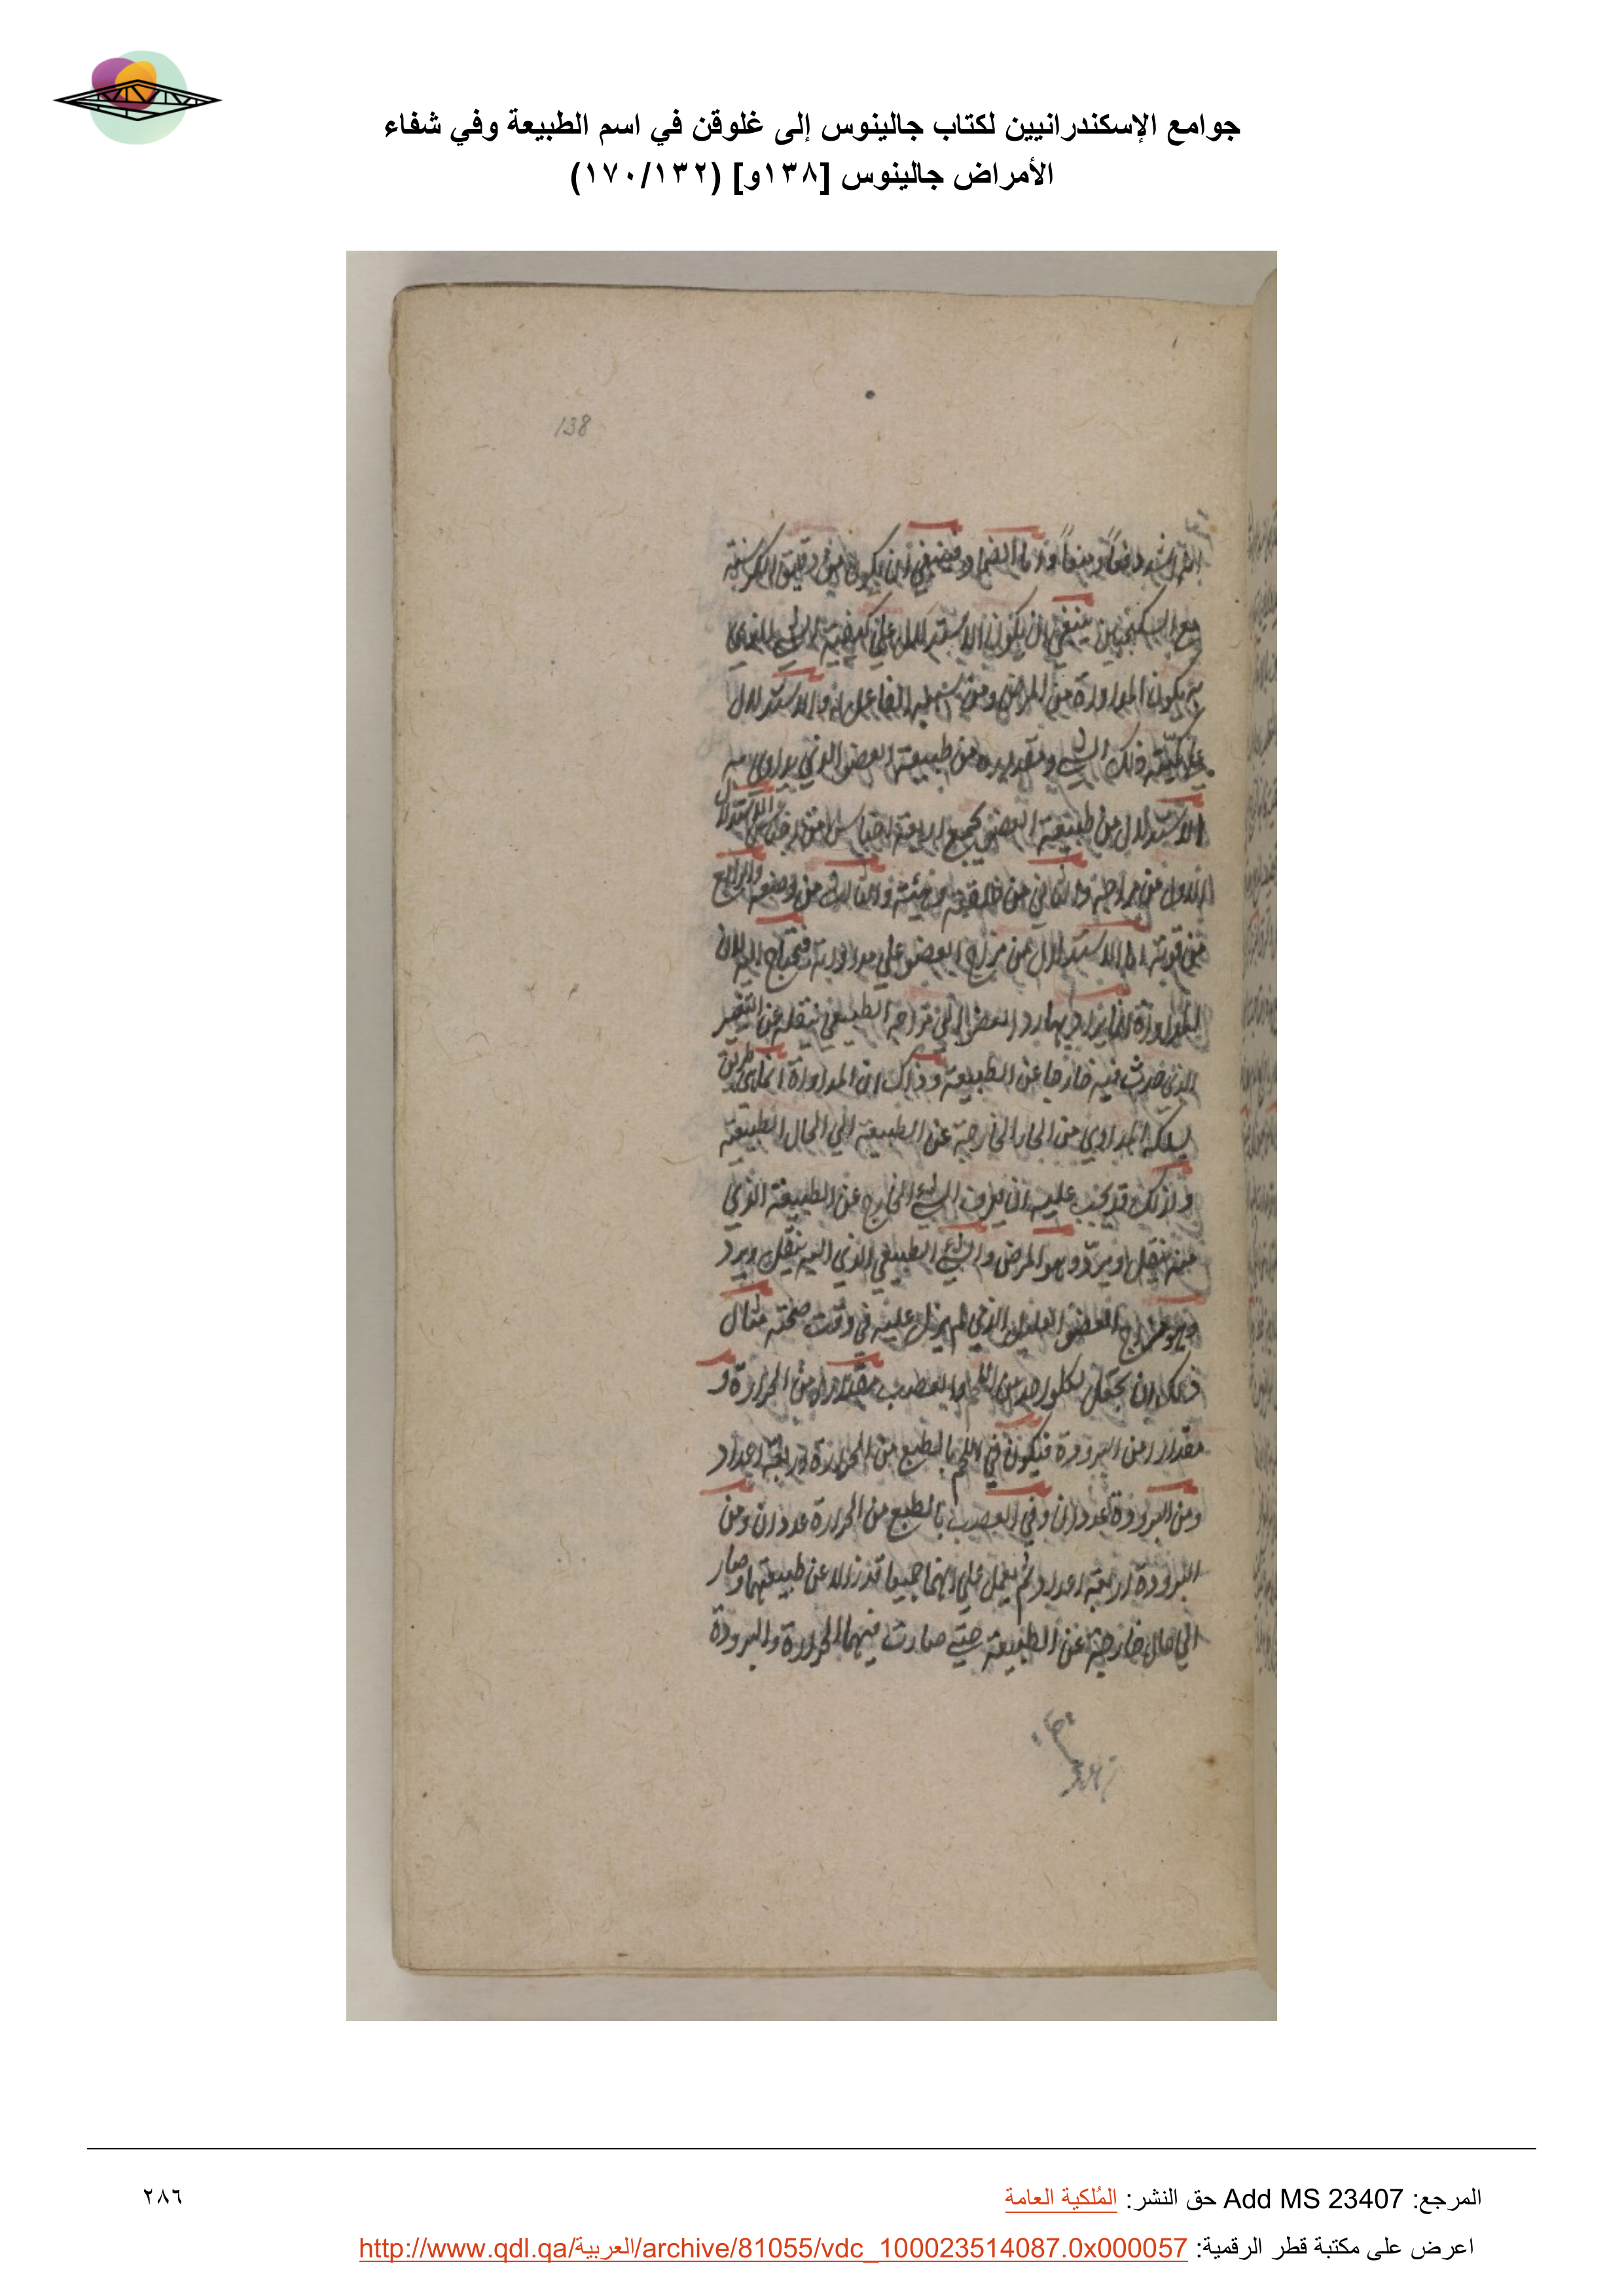 جوامع الإسكندرانيين لكتاب جالينوس إلى غلوقن في اسم الطبيعة وفي شفاء
الأمراض جالينوس [١٣٨و] (١٧٠/١٣٢)
138
وينبغي ان يكون من دقيق الكرسنة
مع السكنجبين ينبغي ان يكون الاستدلال على كيفية الشي الذي
به يكون المداواة من المرض ومن سببه الفاعل له والاستدلال
على كمية ذلك الشي ومقداره من طبيعة العضو الذي يداوي به
الاستدلال من طبيعة العضو يجمع اربعة اجناس من الاستدلال
الاول من مزاجه والثاني من خلقته والثالث من وضعه والرابع
من قوته اما الاستدلال من مزاج العضو على مداواته فيحتاج اليه لان
المداواة انما يراد بها رد العضو الى مزاجه الطبيعي بنقله عن التغير
الذي حدث فيه خارجا عن الطبيعة وذلك ان المداواة انما هي طريق
يسلكه المداوي من الحال الخارجة عن الطبيعة الي الحال الطبيعية
ولذلك قد يجب عليه ان يعرف الشي الخارج عن الطبيعة الذي
عنه ينقل او يرد وهو المرض والشي الطبيعي الذي اليه ينقل ويرد
وهو مزاج العضو العليل الذي لم يزل عليه في وقت صحته مثال
ذلك ان نجعل لكل واحد من اللحم والعصب مقدارا من الحرارة و
مقدارا من البرودة فيكون في اللحم بالطبع من الحرارة اربعة اعداد
ومن البرودة عددان وفي العصب بالطبع من الحرارة عددان ومن
البرودة اربعة اعداد ثم نعمل على انهما جميعا قد زالا عن طبيعتهما وصار
الي حال خارجة عن الطبيعة حتى صارت فيهما الحرارة والبرودة
المرجع: Add MS 23407 حق النشر: المُلكية العامة
٢٨٦
اعرض على مكتبة قطر الرقمية: http://www.qdl.qa/العربية/archive/81055/vdc_100023514087.0x000057